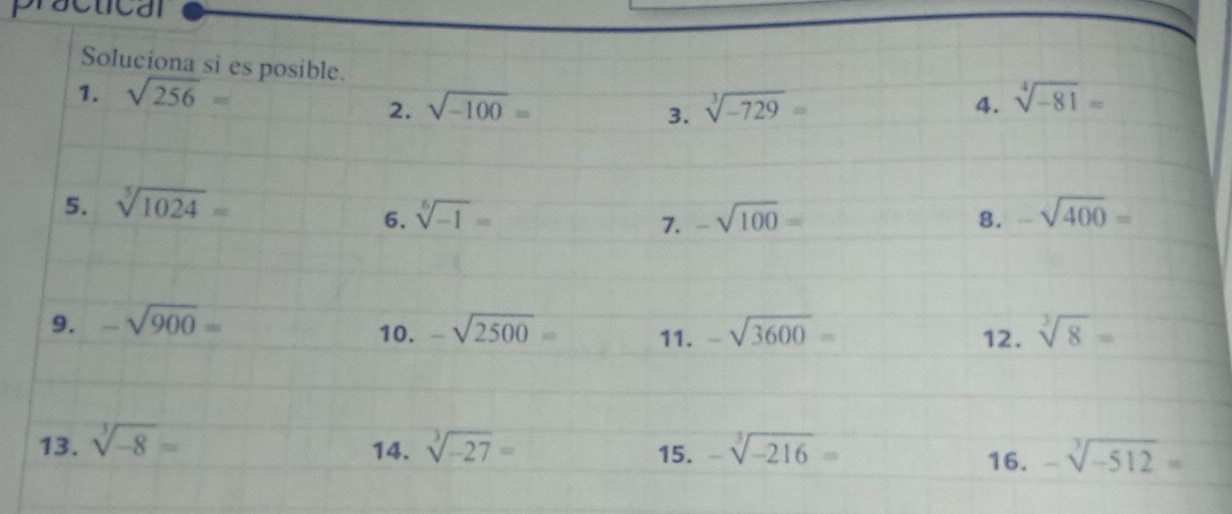 practicar
Soluciona si es posible.
1. √256 = 2. √-100 = 3. ³√-729 = 4. ⁴√-81 =
5. ⁵√1024 = 6. ⁶√-1 = 7. -√100 = 8. -√400 =
9. -√900 = 10. -√2500 = 11. -√3600 = 12. ³√8 =
13. ³√-8 = 14. ³√-27 = 15. -³√-216 = 16. -³√-512 =